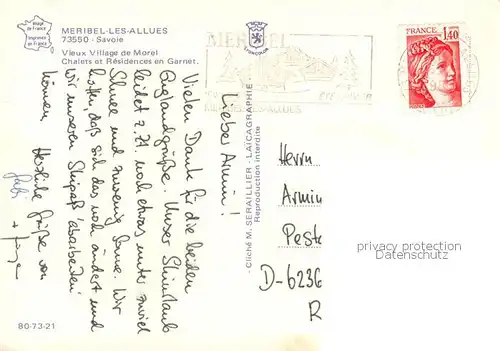 MERIBEL-LES-ALLUES
73550 - Savoie
Vieux Village de Morel
Chalets et Résidences en Garnet.
Image de France
Imprimée en France
Lieber Armin!
Vielen Dank für die beiden
Englandgrüße. Unser Skiurlaub
leidet z. Zt. noch etwas unter zuviel
Schnee und zuwenig Sonne. Wir
hoffen, daß sich das noch ändert und
wir unseren Skipaß 'abarbeiten'
können. Herzliche Grüße von
Gabi
+
80-73-21
LYONCOLOR
- Cliché M. SERAILLIER - LAICAGRAPHIE -
Reproduction interdite
MERIBEL
MERIBEL-LES-ALLUES
FRANCE
1,40
Herrn
Armin
Peste
D-6236
privacy protection
Datenschutz